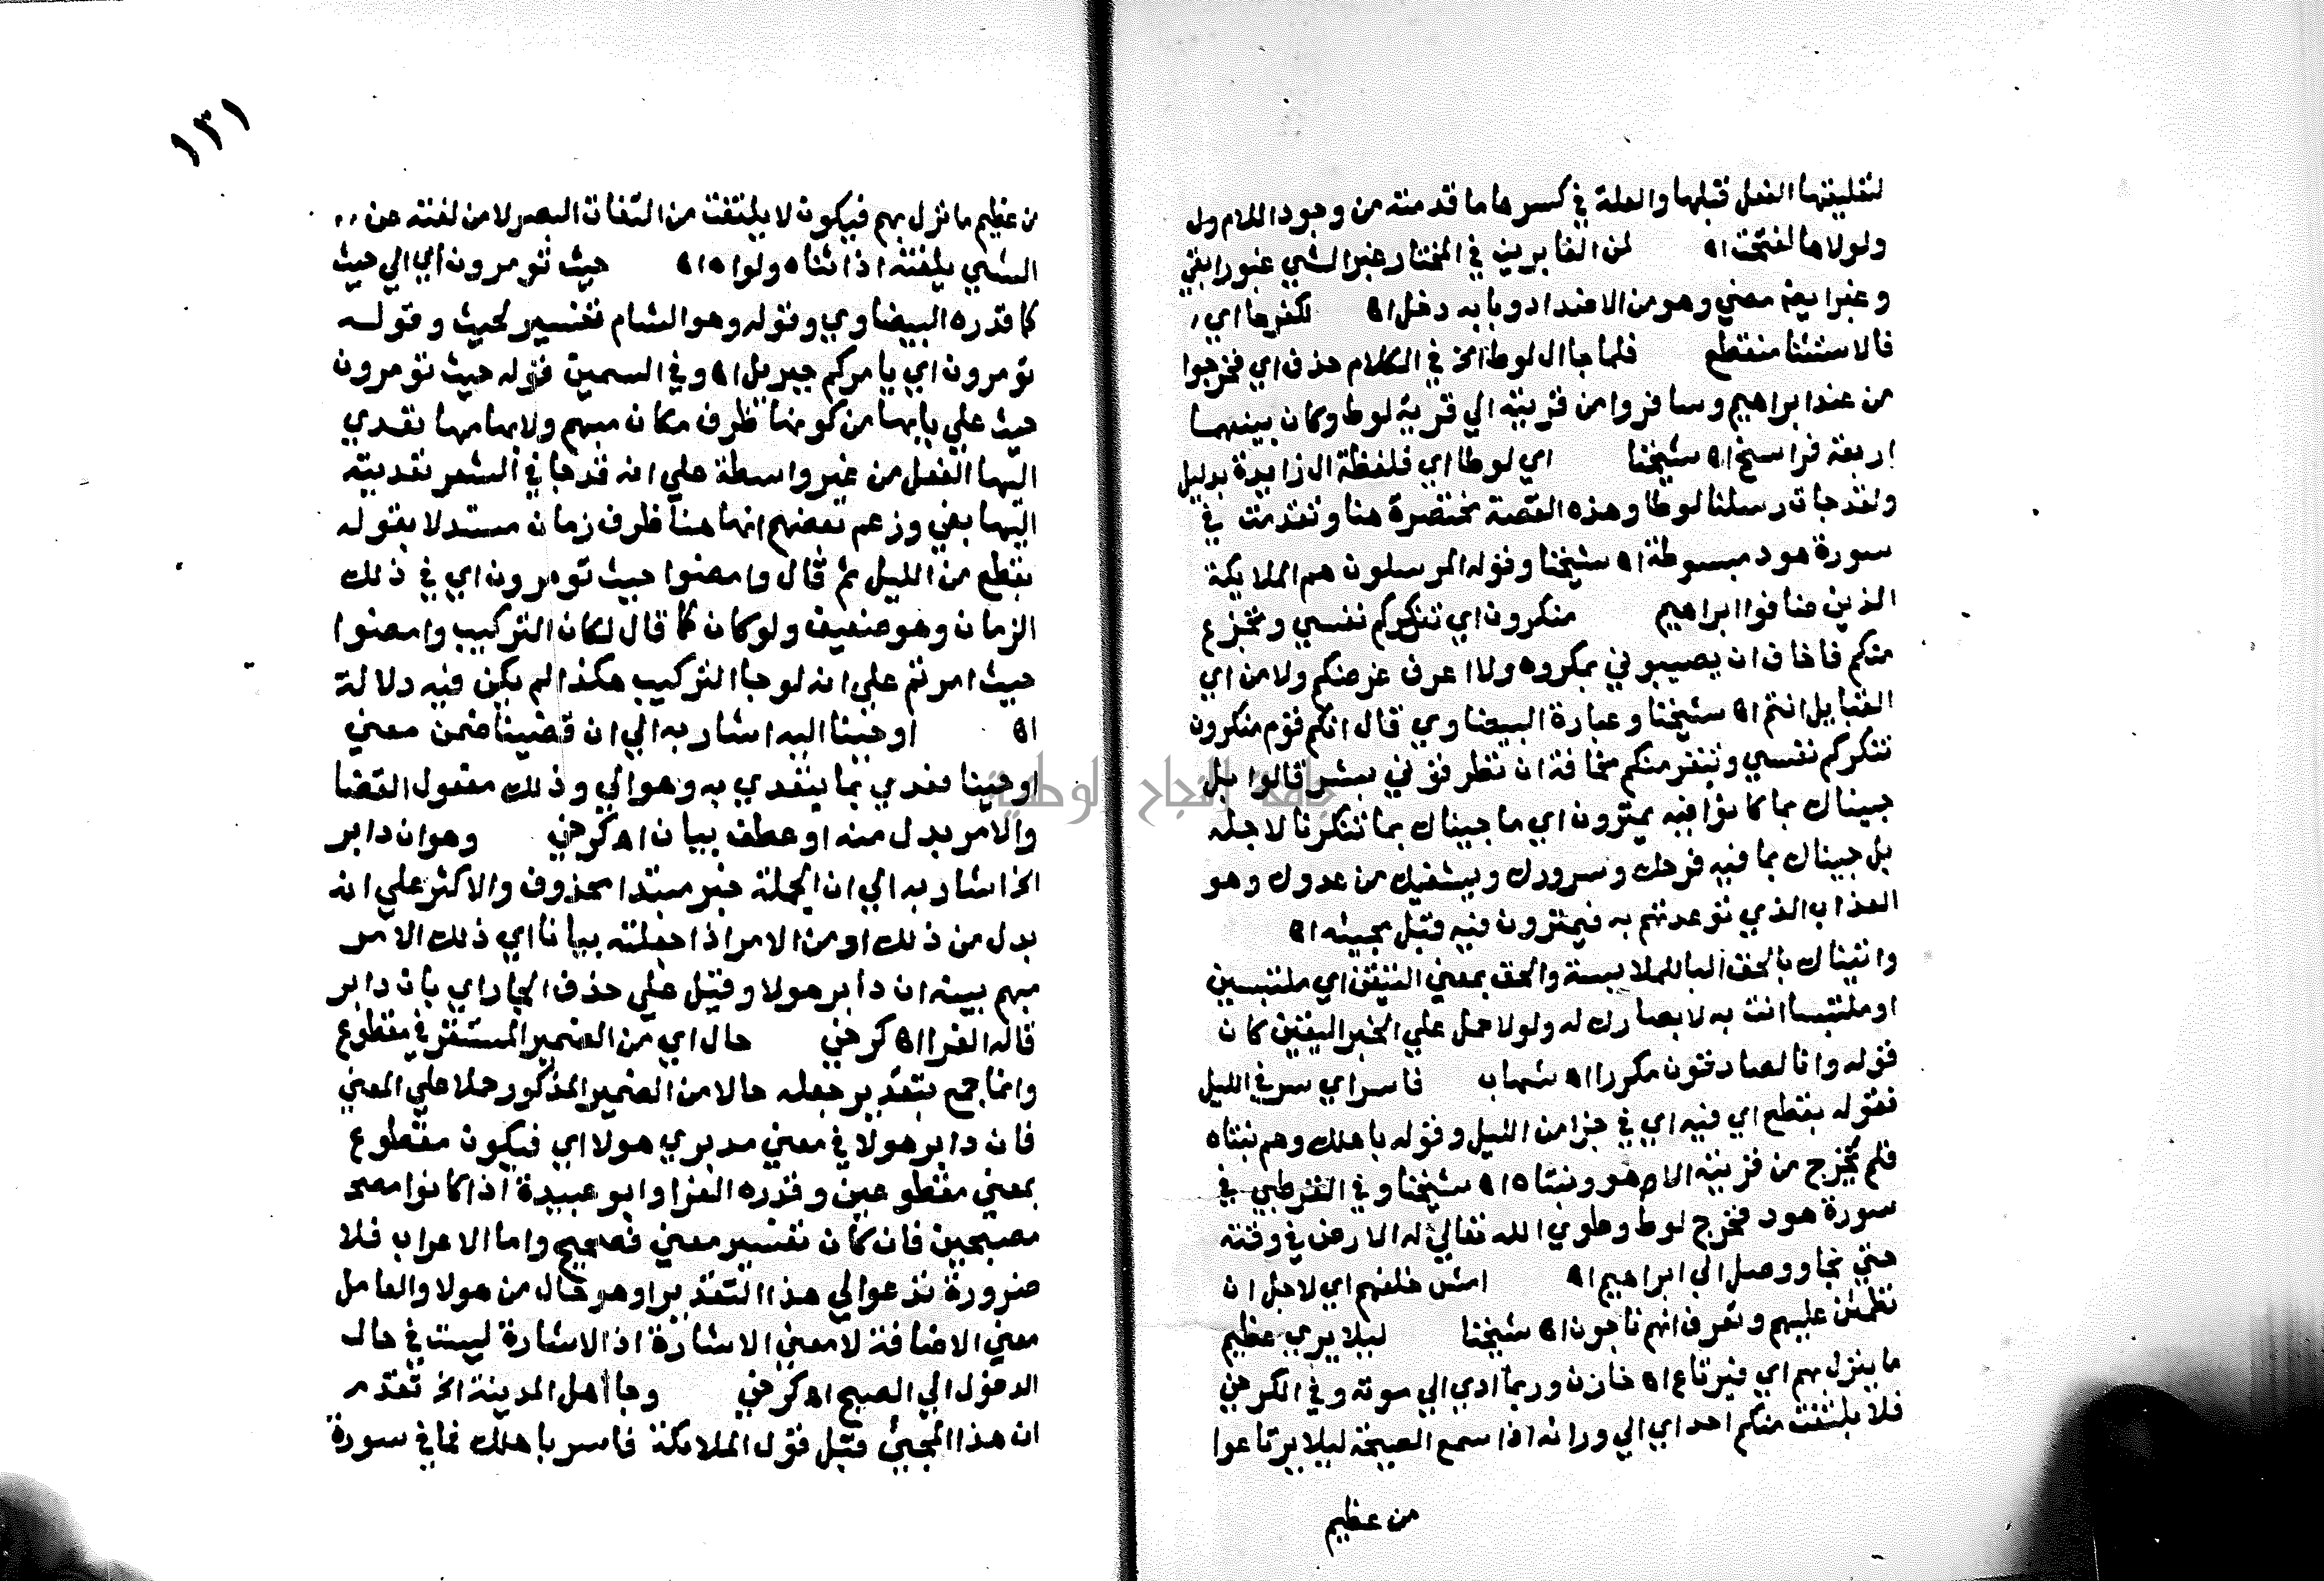 لتعليقها الفعل قبلها والعلة في كسرها ما قدمته من وجود اللام ول
ولولاها لفتحت اه لمن الغابرين في المختار غبر الشي غبورا بقي
وغبر ايضا مضي وهو من الاضداد وبابه دخل اه لكفرها اي
فالاستثنا منقطع فلما جا ال لوط الخ في الكلام حذف اي فخرجوا
من عند ابراهيم وسافروا من قريته الي قرية لوط وكان بينهما
اربعة فراسخ اه شيخنا اي لوطا اي فلفظة ال زايدة بدليل
ولقد جات رسلنا لوطا وهذه القصة مختصرة هنا وتقدمت في
سورة هود مبسوطة اه شيخنا وقوله المرسلون هم الملايكة
الذين ضافوا ابراهيم منكرون اي تنكركم نفسي وتجزع
منكم فاخاف ان يصيبوني بمكروه ولا اعرف غرضكم ولا من اي
القبايل انتم اه شيخنا وعبارة البيضاوي قال انكم قوم منكرون
تنكركم نفسي وتنفر منكم مخافة ان تطرقوني بشر قالوا بل
جيناك بما كانوا فيه يمترون اي ما جيناك بما تنكرنا لاجله
بل جيناك بما فيه فرحك وسرورك ويشفيك من عدوك وهو
العذاب الذي توعدتهم به فيمترون فيه قبل مجيئه اه
واتيناك بالحق البا للملابسة والحق بمعني المتيقن اي ملتبسين
او ملتبسا انت به لابصارك له ولولا حمل علي الخبر اليقين كان
قوله وانا لصادقون مكررا اه شهاب فاسر اي سر في الليل
فقوله بقطع اي فيه اي في جزا من الليل وقوله باهلك وهم بنتاه
فلم يخرج من قريته الا هو وبنتاه اه شيخنا وفي القرطبي في
سورة هود فخرج لوط وطوي الله تعالي له الارض في وقته
حتي نجا ووصل الي ابراهيم اه امش خلفهم اي لاجل ان
تطمئن عليهم وتعرف انهم ناجون اه شيخنا ليلا يري عظيم
ما ينزل بهم اي فيرتاع اه خازن وربما ادي الي موته وفي الكرخي
فلا يلتفت منكم احد اي الي ورائه اذا سمع الصيحة ليلا يرتاعوا
من عظيم
١٣١
من عظيم ما نزل بهم فيكون لا يلتفت من التفات البصر لا من لفته عن
الشي يلفته اذا ثناه ولواه اه حيث تومرون اي الي حيث
كما قدره البيضاوي وقوله وهو الشام تفسير لحيث وقوله
تومرون اي يامركم جبريل اه وفي السمين قوله حيث تومرون
حيث علي بابها من كونها ظرف مكان مبهم ولابهامها تعدي
اليها الفعل من غير واسطة علي انه قد جا في الشعر تعديته
اليها بفي وزعم بعضهم انها هنا ظرف زمان مستدلا بقوله
بقطع من الليل ثم قال وامضوا حيث تومرون اي في ذلك
الزمان وهو ضعيف ولو كان كما قال لكان التركيب وامضوا
حيث امرتم علي انه لو جا التركيب هكذا لم يكن فيه دلالة
اه اوحينا اليه اشار به الي ان قضينا ضمن معني
اوحينا فعدي بما يتعدي به وهو الي وذلك مفعول القضا
والامر بدل منه او عطف بيان اه كرخي وهو ان دابر
الخ اشار به الي ان الجملة خبر مبتدا محذوف والاكثر علي انه
بدل من ذلك او من الامر اذا جعلته بيانا اي ذلك الامر
مبهم بينه ان دابر هولا وقيل علي حذف الجار اي بان دابر
قاله الفرا اه كرخي حال اي من الضمير المستقر في مقطوع
وانما جمع بتقدير جعله حالا من الضمير المذكور حملا علي المعني
فان دابر هولا في معني مدبري هولا اي فيكون مقطوع
بمعني مقطوعين وقدره الفرا وابو عبيدة اذا كانوا مصحـ
مصبحين فان كان تفسير معني فصحيح واما الاعراب فلا
ضرورة تدعو الي هذا التقدير او هو حال من هولا والعامل
معني الاضافة لا معني الاشارة اذ الاشارة ليست في حال
الدخول الي الصبح اه كرخي وجا اهل المدينة الخ تقدم
ان هذا المجيئ قبل قول الملائكة فاسر باهلك فما في سورة